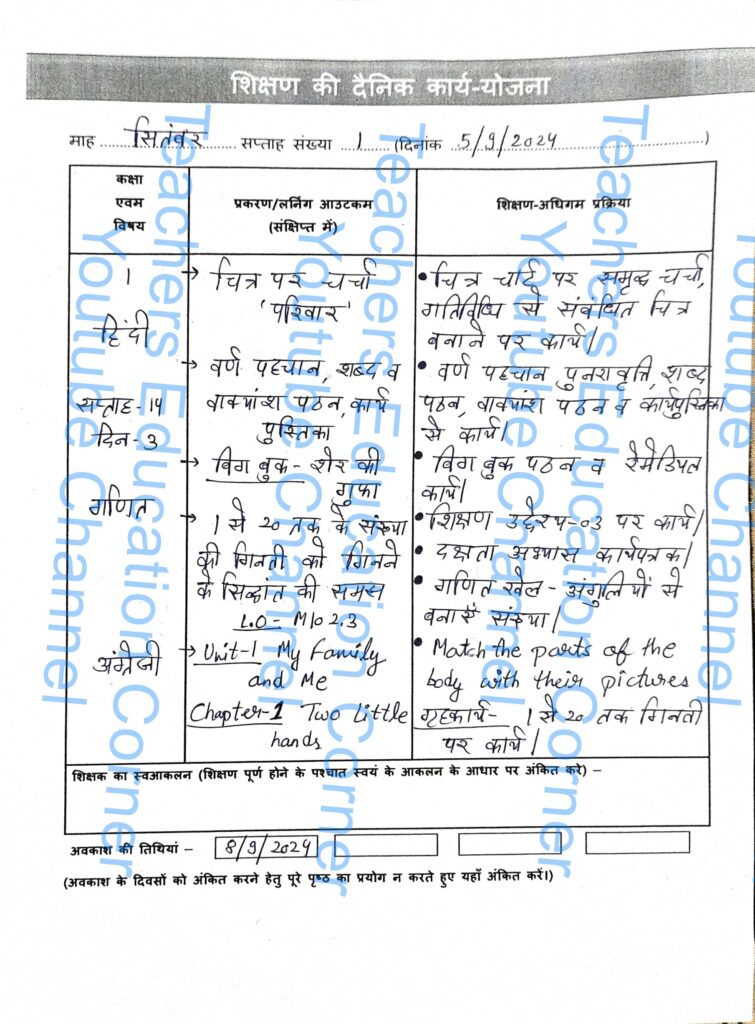 शिक्षण की दैनिक कार्य-योजना
माह सितंबर सप्ताह संख्या 1 (दिनांक 5/9/2024)
कक्षा
एवम
विषय
प्रकरण/लर्निंग आउटकम
(संक्षिप्त में)
शिक्षण-अधिगम प्रक्रिया
1
हिंदी
सप्ताह-14
दिन-3
→ चित्र पर चर्चा
'परिवार'
→ वर्ण पहचान, शब्द व
वाक्यांश पठन, कार्य
पुस्तिका
→ बिग बुक- शेर की
गुफा
• चित्र चार्ट पर समृद्ध चर्चा,
गतिविधि से संबंधित चित्र
बनाने पर कार्य।
• वर्ण पहचान पुनरावृत्ति, शब्द
पठन, वाक्यांश पठन व कार्यपुस्तिका
से कार्य।
• बिग बुक पठन व रेमेडियल
कार्य।
गणित
→ 1 से 20 तक के संख्या
की गिनती को गिनने
के सिद्धांत की समझ
L.O- M102.3
• शिक्षण उद्देश्य-03 पर कार्य।
• दक्षता अभ्यास कार्यपत्रक।
• गणित खेल - अंगुलियों से
बनाएँ संख्या।
अंग्रेजी
→ Unit-1 My Family
and Me
Chapter-1 Two Little
hands
• Match the parts of the
body with their pictures
गृहकार्य- 1 से 20 तक गिनती
पर कार्य।
शिक्षक का स्वआकलन (शिक्षण पूर्ण होने के पश्चात स्वयं के आकलन के आधार पर अंकित करे) –
अवकाश की तिथियां – 8/9/2024
(अवकाश के दिवसों को अंकित करने हेतु पूरे पृष्ठ का प्रयोग न करते हुए यहाँ अंकित करें।)
Teachers Education Corner
Youtube Channel
Teachers Education Corner
Youtube Channel
Teachers Education Corner
Youtube Channel
Youtube Channel